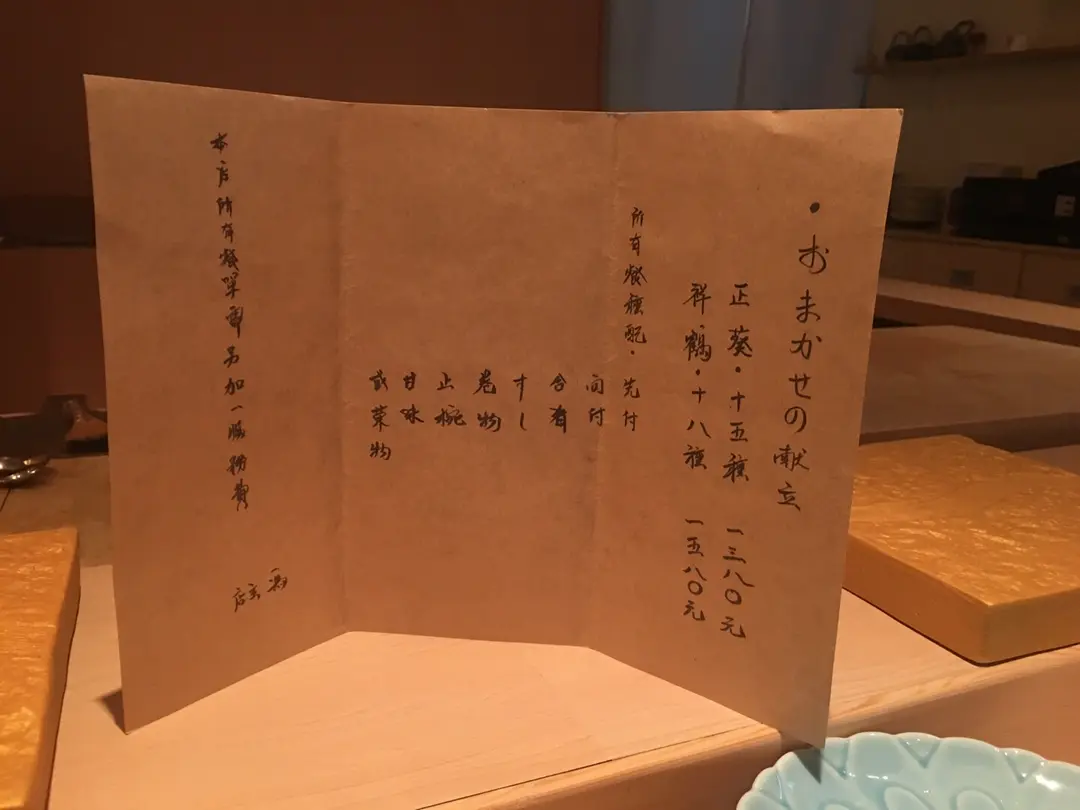 ・おまかせの献立
正葵・十五種 一三八〇元
祥鶴・十八種 一五八〇元
所有餐種配・先付
向付
合肴
すし
巻物
止椀
甘味
或菓物
本店所有餐單需另加一服務費